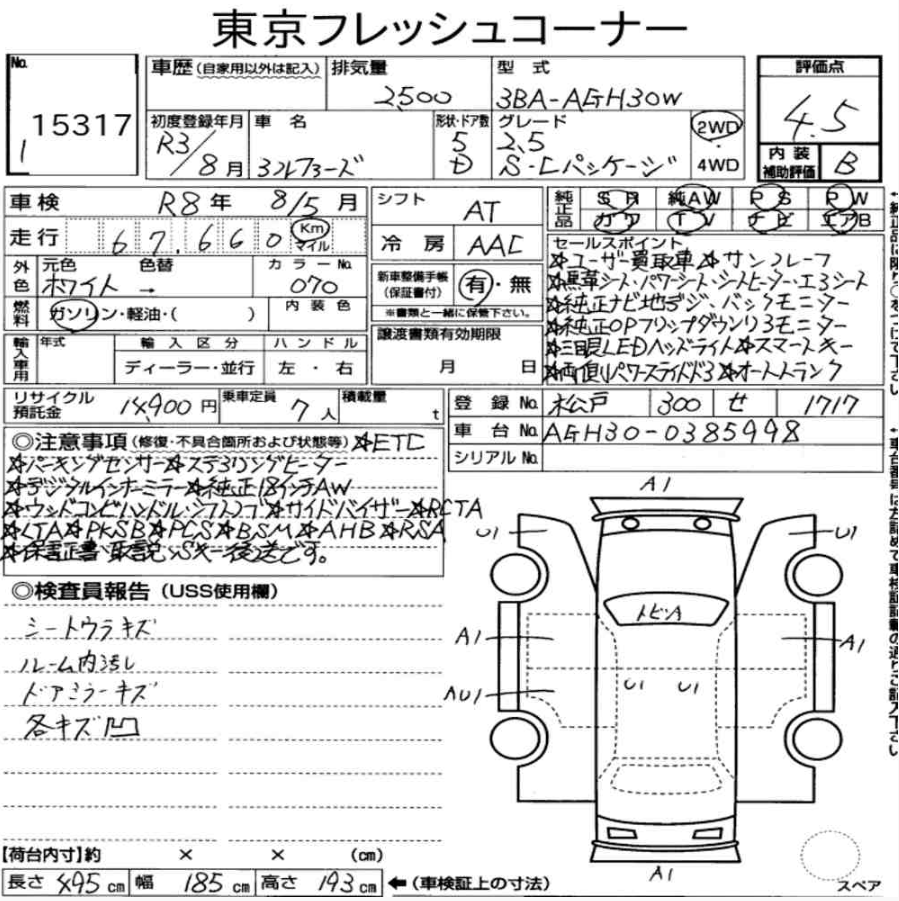 東京フレッシュコーナー
No.
15317
1
車歴(自家用以外は記入)
排気量
2,500
型式
3BA-AGH30W
評価点
4.5
内装補助評価
B
初度登録年月
R3/8月
車名
形状・ドア数
5
D
グレード
2.5
S・Lパッケージ
2WD
・
4WD
車検
R8年 8/5月
走行
67,660
Km
マイル
外色
元色
色替
カラーNo.
ホワイト → 070
燃料
ガソリン・軽油・( )
内装色
輸入車用
年式
輸入区分
ハンドル
ディーラー・並行
左・右
シフト
AT
冷房
AAC
新車整備手帳
(保証書付)
有・無
※書類と一緒に保管下さい。
譲渡書類有効期限
月 日
純正品
SR 純AW PS PW
カワ TV ナビ エアB
セールスポイント
☆ユーザー買取車☆サンルーフ
☆黒革シート・パワーシート・シートヒーター・エアシート
☆純正ナビ地デジ・バックモニター
☆純正OPフリップダウンリアモニター
☆三眼LEDヘッドライト☆スマートキー
☆両側パワースライドドア☆オートトランク
←純正品に限り○をつけて下さい
リサイクル預託金
14,900円
乗車定員
7人
積載量
t
登録No.
松戸 300 せ 1717
車台No.
AGH30-0385998
シリアルNo.
←車台番号は左詰めで車検証記載の通りご記入下さい
◎注意事項(修復・不具合箇所および状態等)☆ETC
☆パーキングセンサー☆ステアリングヒーター
☆デジタルインナーミラー☆純正18インチAW
☆ウッドコンビハンドル・シフトノブ☆サイドバイザー☆RCTA
☆LTA☆PKSB☆PCS☆BSM☆AHB☆RSA
☆保証書・取説・Sキー後送です。
◎検査員報告(USS使用欄)
シートウラキズ
ルーム内汚し
ドアミラーキズ
各キズ凹
A1
U1
U1
トビA
A1
A1
AU1
U1 U1
A1
スペア
【荷台内寸】約 × × (cm)
長さ 495cm 幅 185cm 高さ 193cm ←(車検証上の寸法)